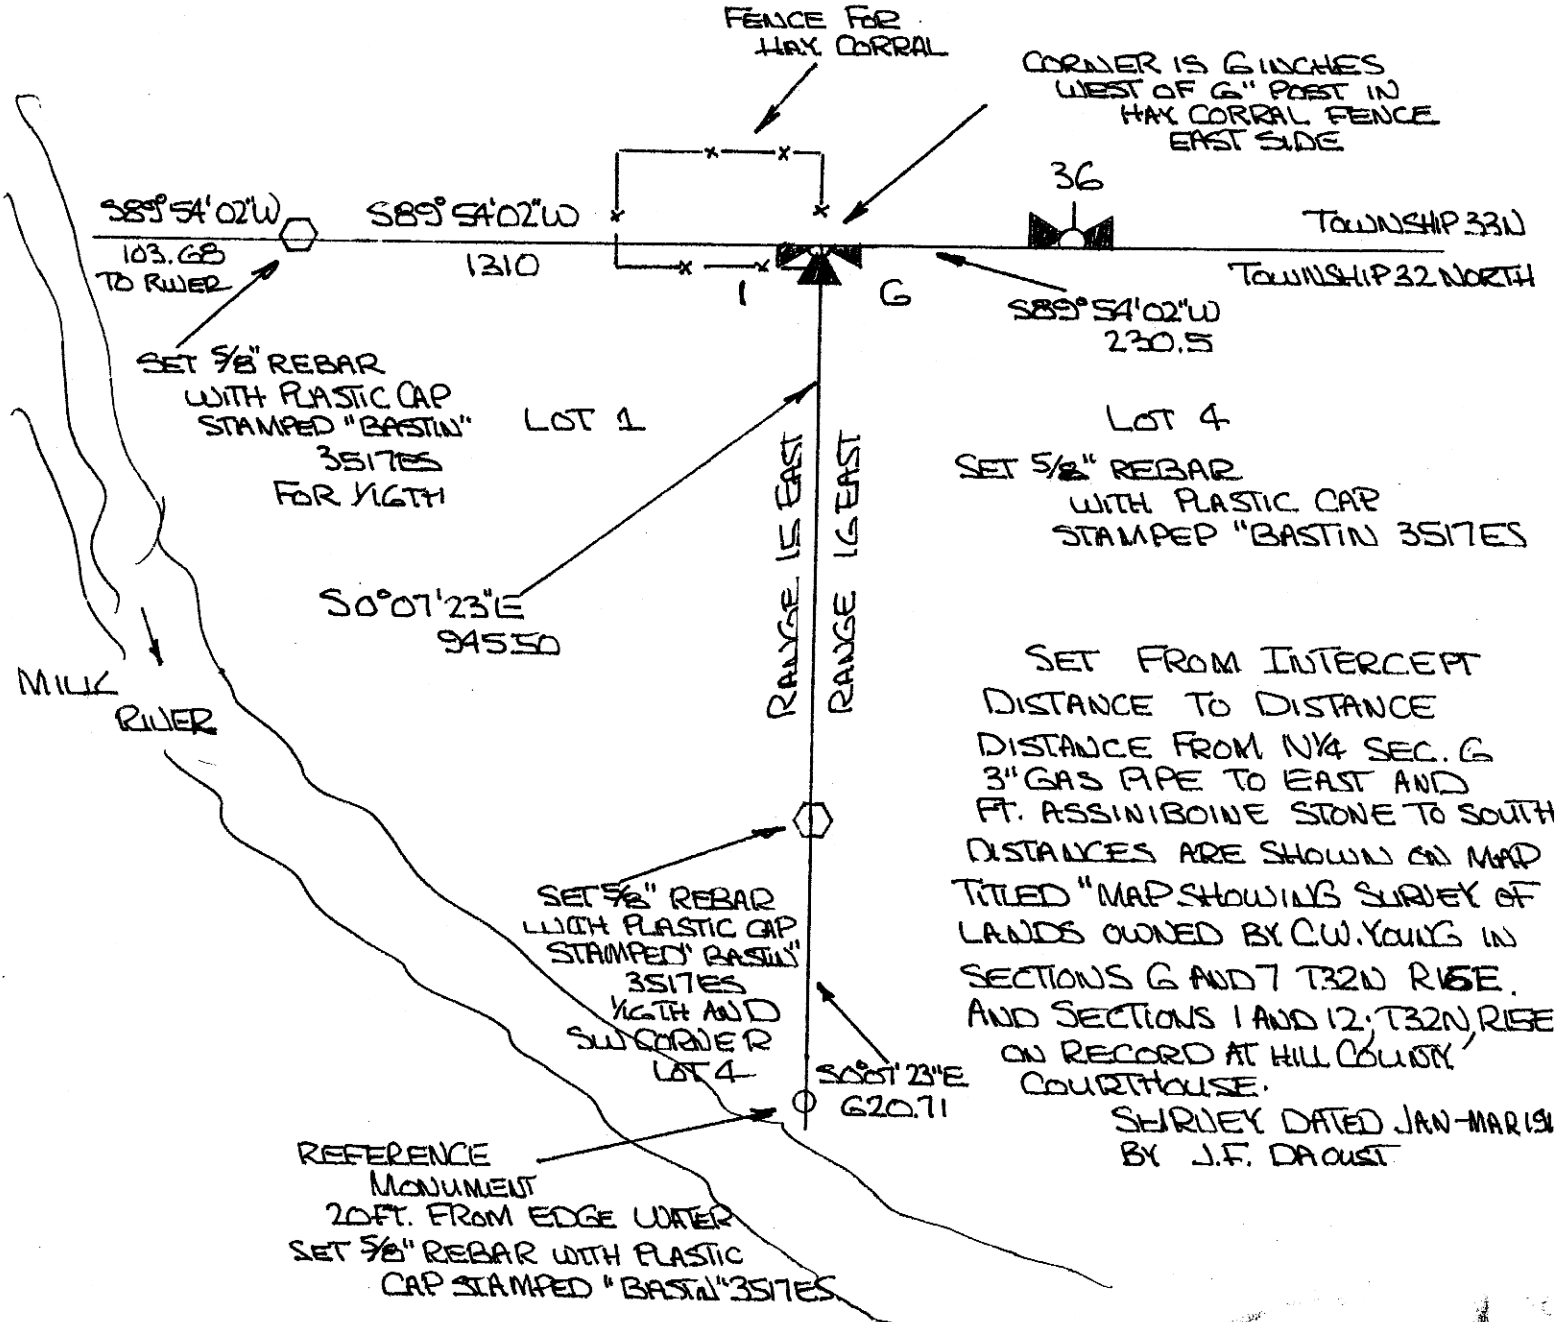 FENCE FOR
HAY CORRAL
CORNER IS 6 INCHES
WEST OF 6" POST IN
HAY CORRAL FENCE
EAST SIDE
36
S89°54'02"W
103.68
TO RIVER
S89°54'02"W
1310
TOWNSHIP 33N
TOWNSHIP 32 NORTH
1
6
S89°54'02"W
230.5
SET 5/8" REBAR
WITH PLASTIC CAP
STAMPED "BASTIN"
3517ES
FOR 1/16TH
LOT 1
LOT 4
SET 5/8" REBAR
WITH PLASTIC CAP
STAMPED "BASTIN 3517ES
RANGE 15 EAST
RANGE 16 EAST
S0°07'23"E
945.50
MILK
RIVER
SET FROM INTERCEPT
DISTANCE TO DISTANCE
DISTANCE FROM N1/4 SEC. 6
3" GAS PIPE TO EAST AND
FT. ASSINIBOINE STONE TO SOUTH
DISTANCES ARE SHOWN ON MAP
TITLED "MAP SHOWING SURVEY OF
LANDS OWNED BY C.W. YOUNG IN
SECTIONS 6 AND 7 T32N R16E.
AND SECTIONS 1 AND 12, T32N, R15E
ON RECORD AT HILL COUNTY
COURTHOUSE.
SURVEY DATED JAN-MAR
BY J.F. DAOUST
SET 5/8" REBAR
WITH PLASTIC CAP
STAMPED "BASTIN"
3517ES
1/16TH AND
SW CORNER
LOT 4
S0°07'23"E
620.71
REFERENCE
MONUMENT
20FT. FROM EDGE WATER
SET 5/8" REBAR WITH PLASTIC
CAP STAMPED "BASTIN" 3517ES.